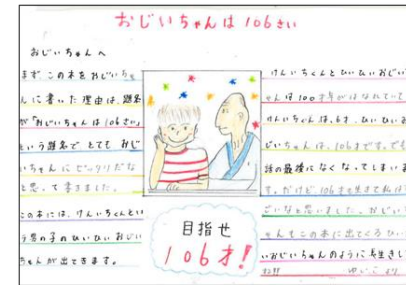 おじいちゃんは106さい
おじいちゃんへ
まず この本をおじいちゃ
んに書いた理由は、題名
が「おじいちゃんは106さい」
という題名で とても おじ
いちゃんに ピッタリだな
と思って 書きました。
この本には、けんいちくんとい
う男の子のひいひいおじい
ちゃんが出てきます。
目指せ
106才!
けんいちくんとひいひいおじい
ゃんは100才年がはなれていて
けんいちくんは、6才、ひいひいお
じいちゃんは、106才です。でも
話の最後になくなってしまいま
す。だけど 106才も生きて私は
ごいなと思いました。おじいち
ゃんもこの本に出てくるひい
いおじいちゃんのように長生きし
ゆいこより